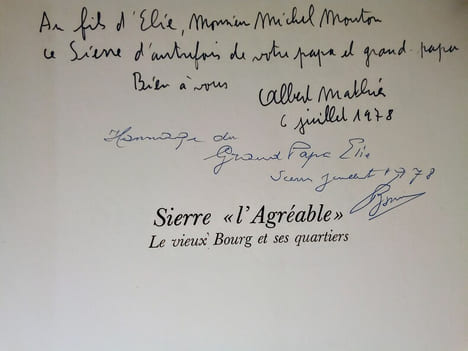 Au fils d'Elie, Monsieur Michel Mouton
ce Sierre d'autrefois de votre papa et grand-papa
Bien à vous
Albert Mathier
6 juillet 1978
Hommage du
Grand Papa Elie
Sierre 1978
Sierre «l'Agréable»
Le vieux Bourg et ses quartiers